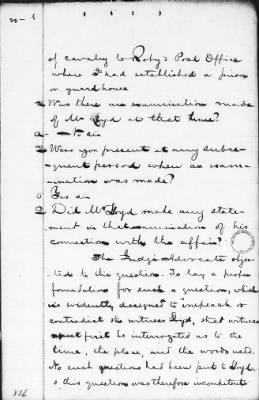 of cavalry to Roby's Post Office
where I had established a prison
or guard house
Q Was there an examination made
of Mr Lloyd at that time?
A No sir
Q Were you present at any subse-
quent period when an exam-
ination was made?
A Yes sir
Q Did Mr Lloyd make any state-
ment in that examination of his
connection with the affair?
The Judge Advocate objec-
ted to the question. To lay a proper
foundation for such a question, which
is evidently designed to impeach or
contradict the witness Lloyd, that witness
must first be interrogated as to the
time, the place, and the words used.
No such questions had been put to Lloyd,
& this question was therefore incompetent
826